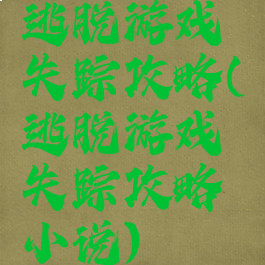 逃脱游戏
失踪攻略(
逃脱游戏
失踪攻略
小说)